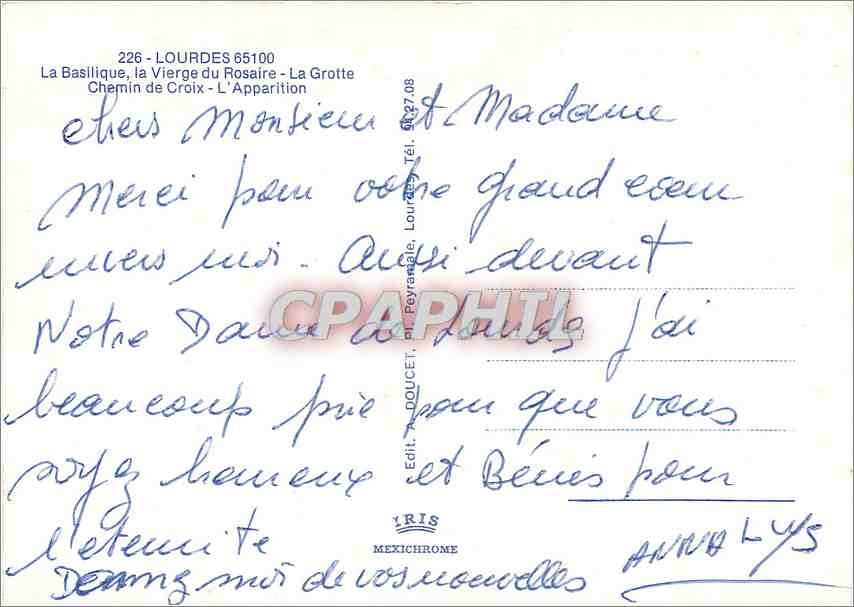 226 - LOURDES 65100
La Basilique, la Vierge du Rosaire - La Grotte
Chemin de Croix - L'Apparition
chers Monsieur et Madame
Merci pour votre grand coeur
envers moi. Aussi devant
Notre Dame de Lourdes j'ai
beaucoup prié pour que vous
soyez heureux et Bénis pour
l'eternite
Donnez moi de vos nouvelles
ANNA LYS
Edit. A. DOUCET, Pl. Peyramale, Lourdes, Tél. 94.27.08
CPAPHIL
IRIS
MEXICHROME